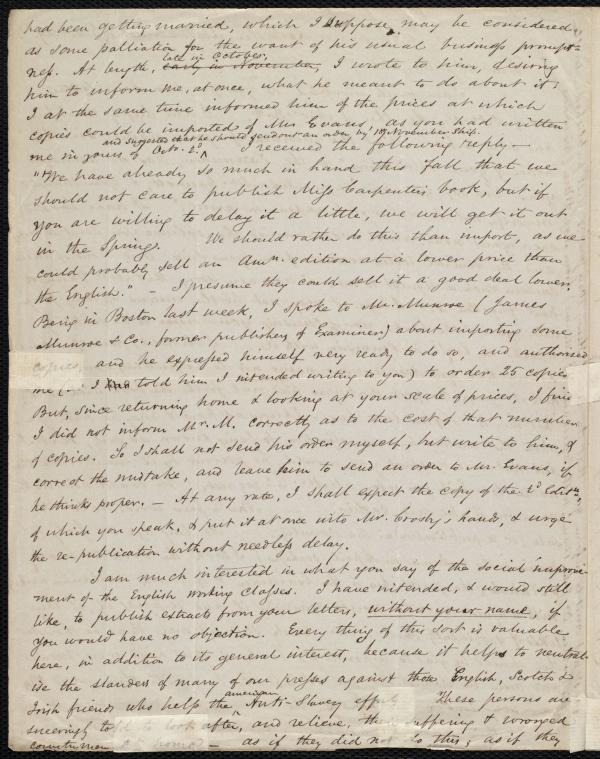 had been getting married, which I suppose may be considered
as some palliation for the want of his usual business prompt-
ness. At length, early in November, late in October, I wrote to him, desiring
him to inform me, at once, what he meant to do about it;
I at the same time informed him of the prices at which
copies could be imported of Mr. Evans, as you had written
me in yours of Octo. 2d and suggested that he should send out an order by 1st November Ship. I received the following reply—
"We have already so much in hand this fall that we
should not care to publish Miss Carpenter's book, but if
you are willing to delay it a little, we will get it out
in the Spring. We should rather do this than import, as we
could probably sell an Amn. edition at a lower price than
the English." — I presume they could sell it a good deal lower.
Being in Boston last week, I spoke to Mr. Munroe (James
Munroe & Co., former publishers of Examiner) about importing some
copies, and he expressed himself very ready to do so, and authorised
me ( I told him I intended writing to you) to order 25 copies
But, since returning home & looking at your scale of prices, I find
I did not inform Mr. M. correctly as to the cost of that number
of copies. So I shall not send his order myself, but write to him, &
correct the mistake, and leave him to send an order to Mr. Evans, if
he thinks proper. — At any rate, I shall expect the copy of the 2d Editn.,
of which you speak, & put it at once into Mr. Crosby's hands, & urge
the re-publication without needless delay.
I am much interested in what you say of the social improve-
ment of the English working classes. I have intended, & would still
like, to publish extracts from your letters, without your name, if
you would have no objection. Every thing of this sort is valuable
here, in addition to its general interest, because it helps to neutral-
ise the slanders of many of our presses against those English, Scotch &
Irish friends who help the American Anti-Slavery These persons are
sneeringly to look after, and relieve, suffering & wronged
countrymen — as if they did not do this; as if they